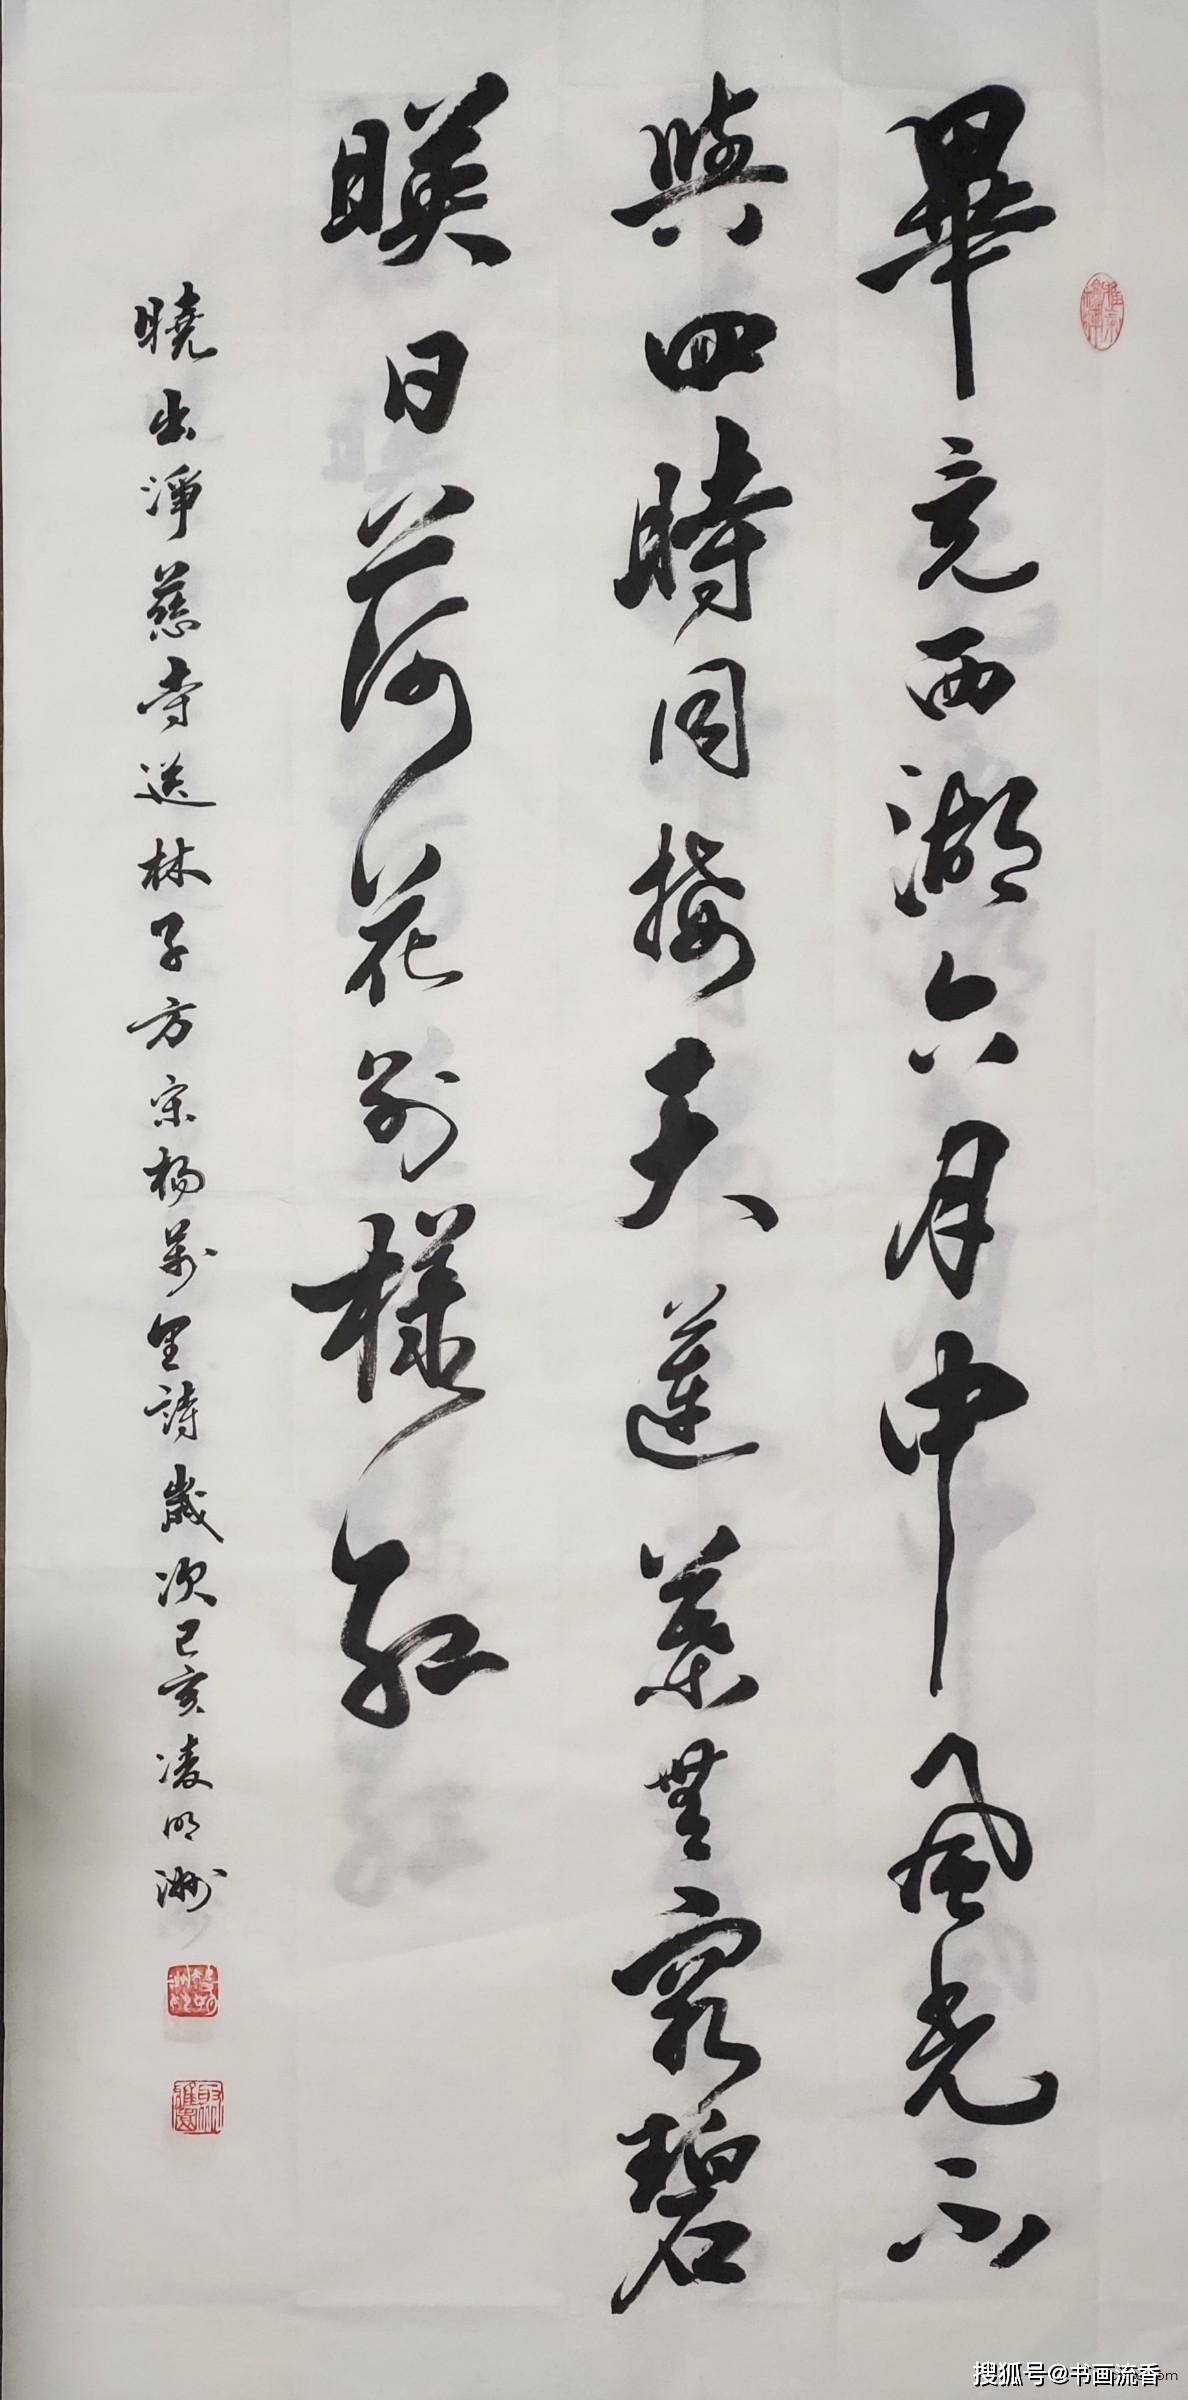 畢竟西湖六月中風光不
與四時同接天蓮葉無窮碧
暎日荷花别樣紅
曉出淨慈寺送林子方宋楊萬里詩歲次己亥凌明洲
搜狐号@书画流香